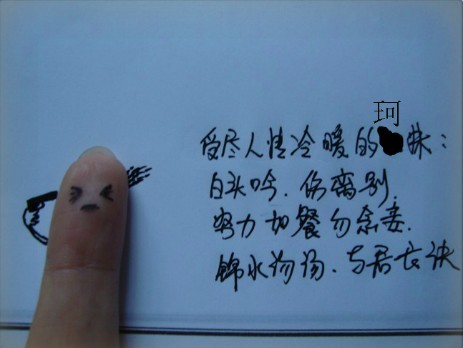 受尽人情冷暖的珂妹:
白头吟.伤离别.
努力加餐勿念妾.
锦水汤汤.与君长诀